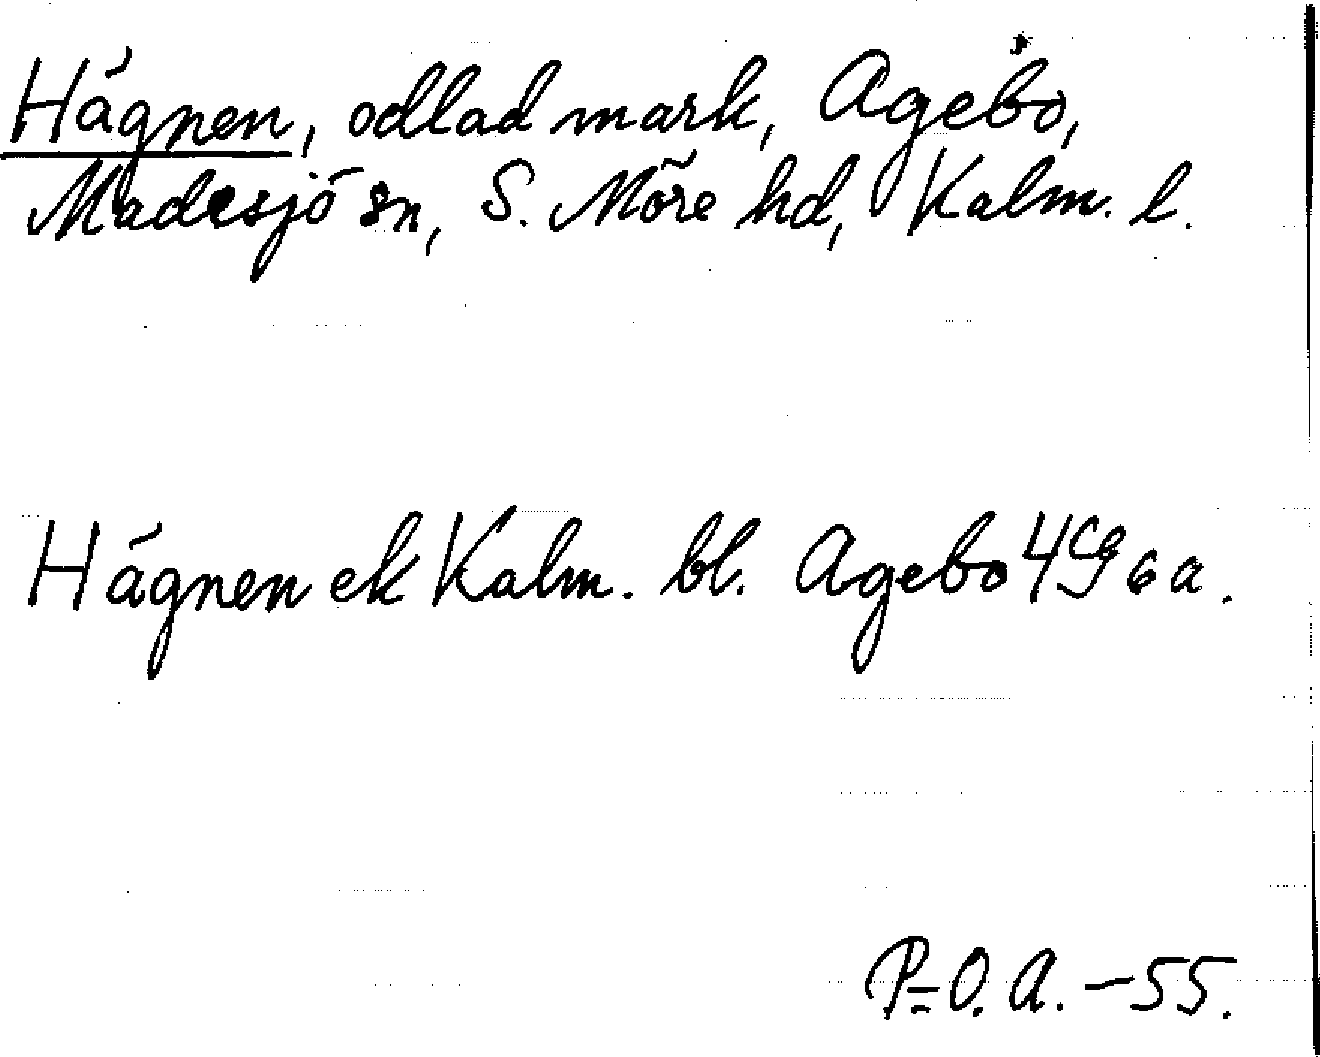 Hägnen, odlad mark, Agebo,
Madesjö sn, S. Möre hd, Kalm. l.
Hägnen ek Kalm. bl. Agebo 4G6a.
P-O. A. -55.